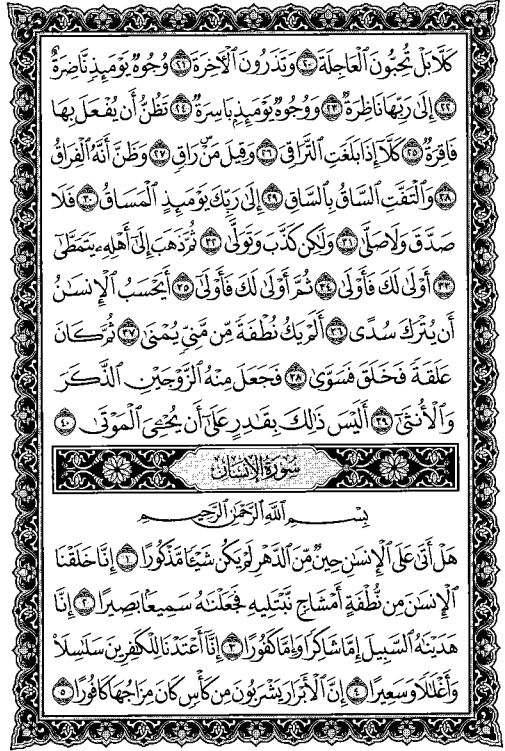 كَلَّا بَلْ تُحِبُّونَ ٱلْعَاجِلَةَ ٢٠ وَتَذَرُونَ ٱلْـَٔاخِرَةَ ٢١ وُجُوهٌ يَوْمَئِذٍ نَّاضِرَةٌ
٢٢ إِلَىٰ رَبِّهَا نَاظِرَةٌ ٢٣ وَوُجُوهٌ يَوْمَئِذٍۭ بَاسِرَةٌ ٢٤ تَظُنُّ أَن يُفْعَلَ بِهَا
فَاقِرَةٌ ٢٥ كَلَّآ إِذَا بَلَغَتِ ٱلتَّرَاقِىَ ٢٦ وَقِيلَ مَنْ رَاقٍ ٢٧ وَظَنَّ أَنَّهُ ٱلْفِرَاقُ
٢٨ وَٱلْتَفَّتِ ٱلسَّاقُ بِٱلسَّاقِ ٢٩ إِلَىٰ رَبِّكَ يَوْمَئِذٍ ٱلْمَسَاقُ ٣٠ فَلَا
صَدَّقَ وَلَا صَلَّىٰ ٣١ وَلَٰكِن كَذَّبَ وَتَوَلَّىٰ ٣٢ ثُمَّ ذَهَبَ إِلَىٰٓ أَهْلِهِۦ يَتَمَطَّىٰٓ
٣٣ أَوْلَىٰ لَكَ فَأَوْلَىٰ ٣٤ ثُمَّ أَوْلَىٰ لَكَ فَأَوْلَىٰٓ ٣٥ أَيَحْسَبُ ٱلْإِنسَٰنُ
أَن يُتْرَكَ سُدًى ٣٦ أَلَمْ يَكُ نُطْفَةً مِّن مَّنِىٍّ يُمْنَىٰ ٣٧ ثُمَّ كَانَ
عَلَقَةً فَخَلَقَ فَسَوَّىٰ ٣٨ فَجَعَلَ مِنْهُ ٱلزَّوْجَيْنِ ٱلذَّكَرَ
وَٱلْأُنثَىٰٓ ٣٩ أَلَيْسَ ذَٰلِكَ بِقَٰدِرٍ عَلَىٰٓ أَن يُحْۦِىَ ٱلْمَوْتَىٰ ٤٠
سُورَةُ الإِنسَان
بِسْمِ ٱللَّهِ ٱلرَّحْمَٰنِ ٱلرَّحِيمِ
هَلْ أَتَىٰ عَلَى ٱلْإِنسَٰنِ حِينٌ مِّنَ ٱلدَّهْرِ لَمْ يَكُن شَيْـًٔا مَّذْكُورًا ١ إِنَّا خَلَقْنَا
ٱلْإِنسَٰنَ مِن نُّطْفَةٍ أَمْشَاجٍ نَّبْتَلِيهِ فَجَعَلْنَٰهُ سَمِيعًۢا بَصِيرًا ٢ إِنَّا
هَدَيْنَٰهُ ٱلسَّبِيلَ إِمَّا شَاكِرًا وَإِمَّا كَفُورًا ٣ إِنَّآ أَعْتَدْنَا لِلْكَٰفِرِينَ سَلَٰسِلَا۟
وَأَغْلَٰلًا وَسَعِيرًا ٤ إِنَّ ٱلْأَبْرَارَ يَشْرَبُونَ مِن كَأْسٍ كَانَ مِزَاجُهَا كَافُورًا ٥